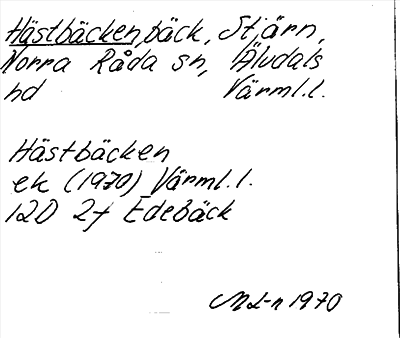 Hästbäcken, bäck, Stjärn,
Norra Råda sn, Älvdals
hd Värml.l.
Hästbäcken
ek (1970) Värml.l.
12D 2f Edebäck
1970